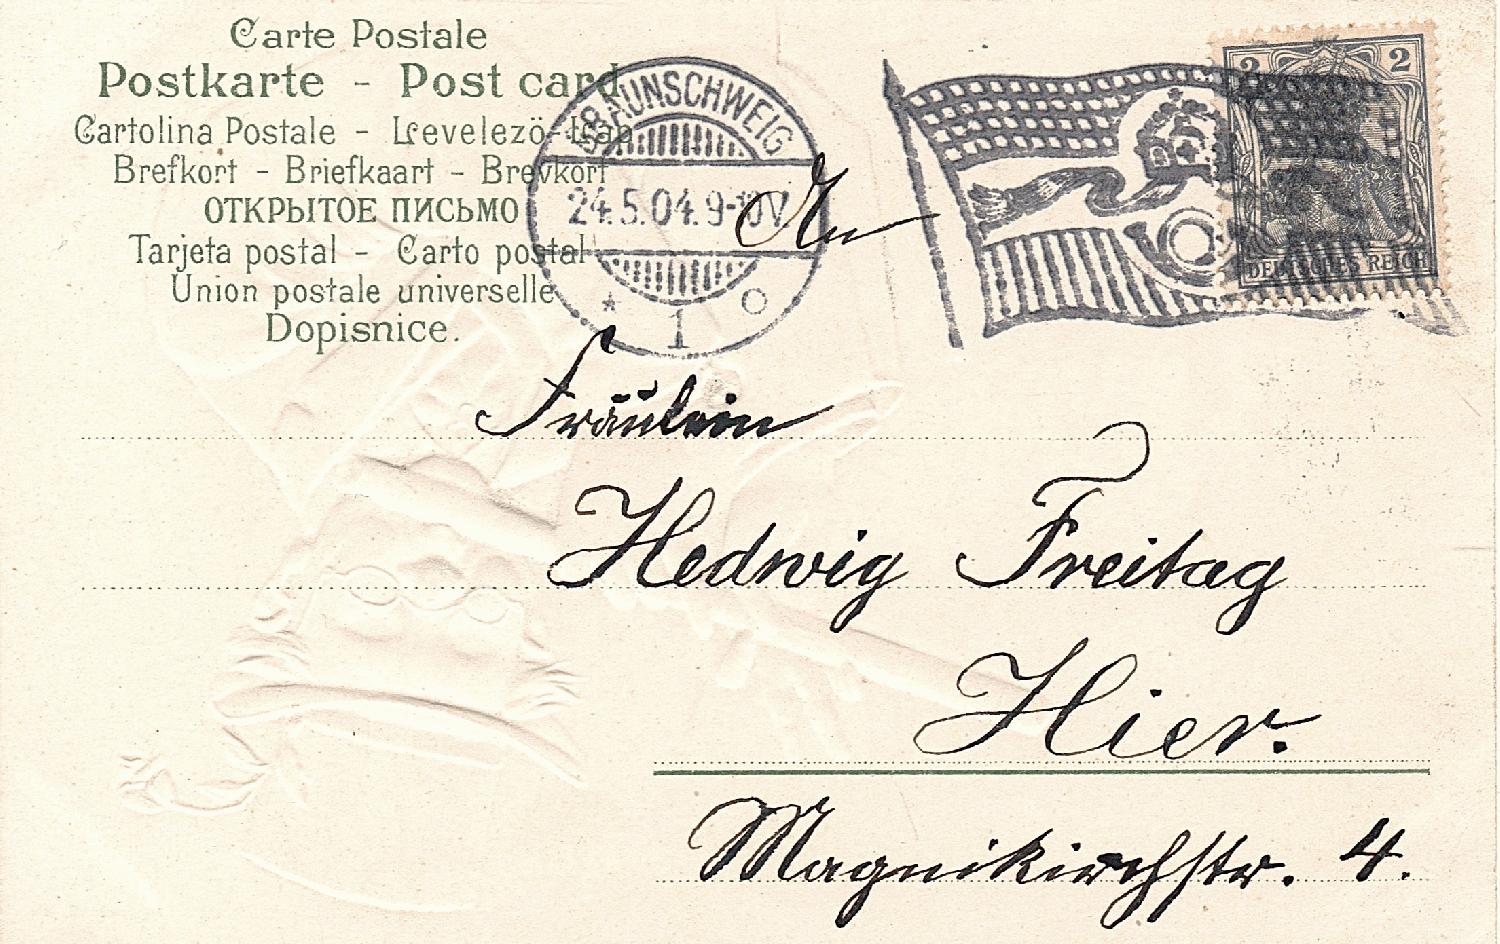 Carte Postale
Postkarte - Post card
Cartolina Postale - Levelezö-Lap
Brefkort - Briefkaart - Brevkort
ОТКРЫТОЕ ПИСЬМО
Tarjeta postal - Carto postal
Union postale universelle
Dopisnice.
BRAUNSCHWEIG
24.5.04.9-10V.
* 1 o
2 2
DEUTSCHES REICH
An
Fräulein
Hedwig Freitag
Hier.
Magnikirchstr. 4.